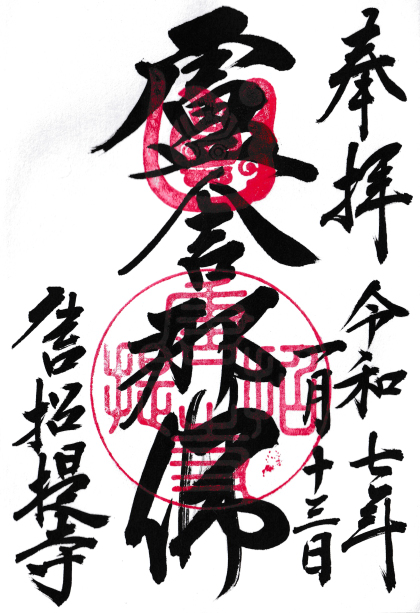 奉拝
令和七年
一月十三日
盧舎那仏
唐招提寺